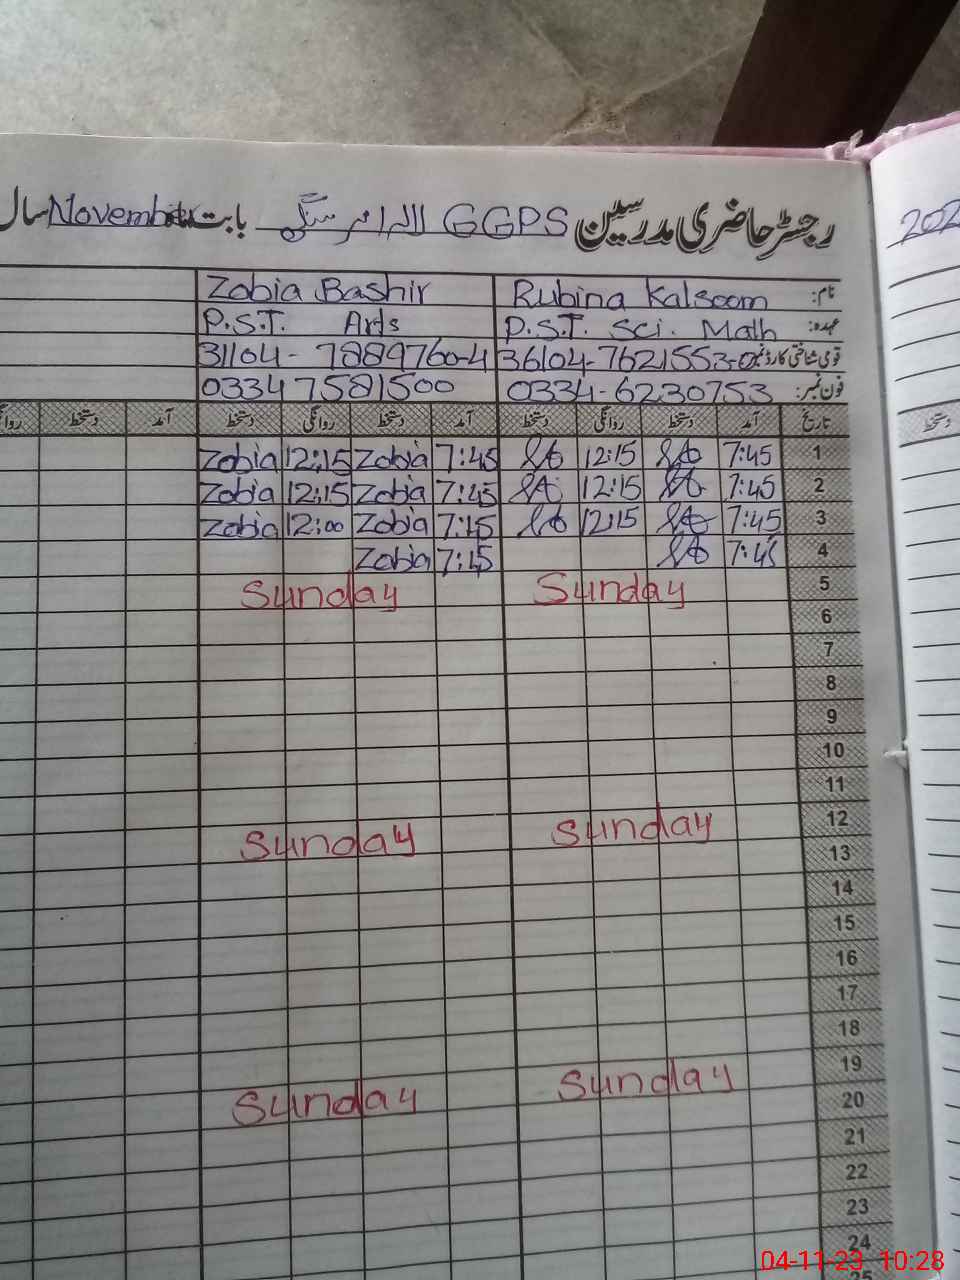 رجسٹر حاضری مدرسین GGPS لالہ امر سنگھ بابت November سال
202
نام: Rubina Kalsoom Zobia Bashir
عہدہ: P.S.T. Sci. Math P.S.T. Arts
قومی شناختی کارڈ نمبر 36104-7621553-0 31104-7889760-4
فون نمبر: 0334-6230753 03347581500
تاریخ آمد دستخط روانگی دستخط آمد دستخط روانگی دستخط آمد دستخط
دستخط
1 7:45 12:15 7:45 Zobia 12:15 Zobia
2 7:45 12:15 7:45 Zobia 12:15 Zobia
3 7:45 12:15 7:45 Zobia 12:00 Zobia
4 7:45 7:45 Zobia
5 Sunday Sunday
6
7
8
9
10
11
12 Sunday Sunday
13
14
15
16
17
18
19 Sunday Sunday
20
21
22
23
24
25
04-11-23 10:28